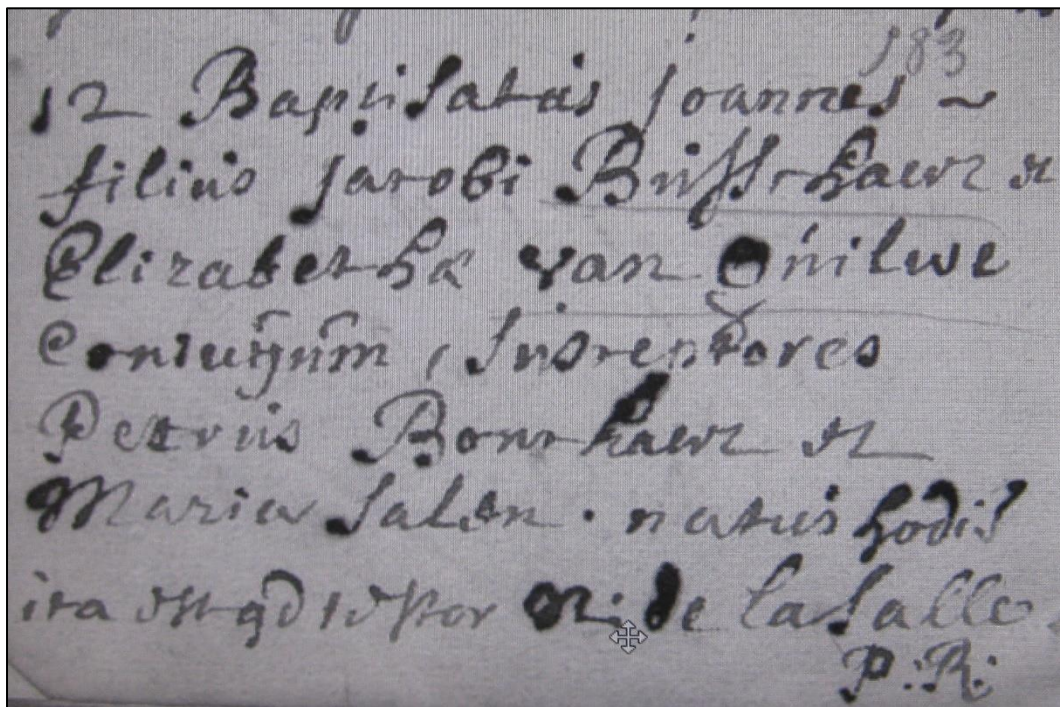 183
12 Baptisatus Joannes ~
filius Jacobi Busschaert et
Elizabetha van
Coniugum, Susceptores
Petrus Bouckaert et
Maria Salen . natus hodie
ita de la Salle
P: R: